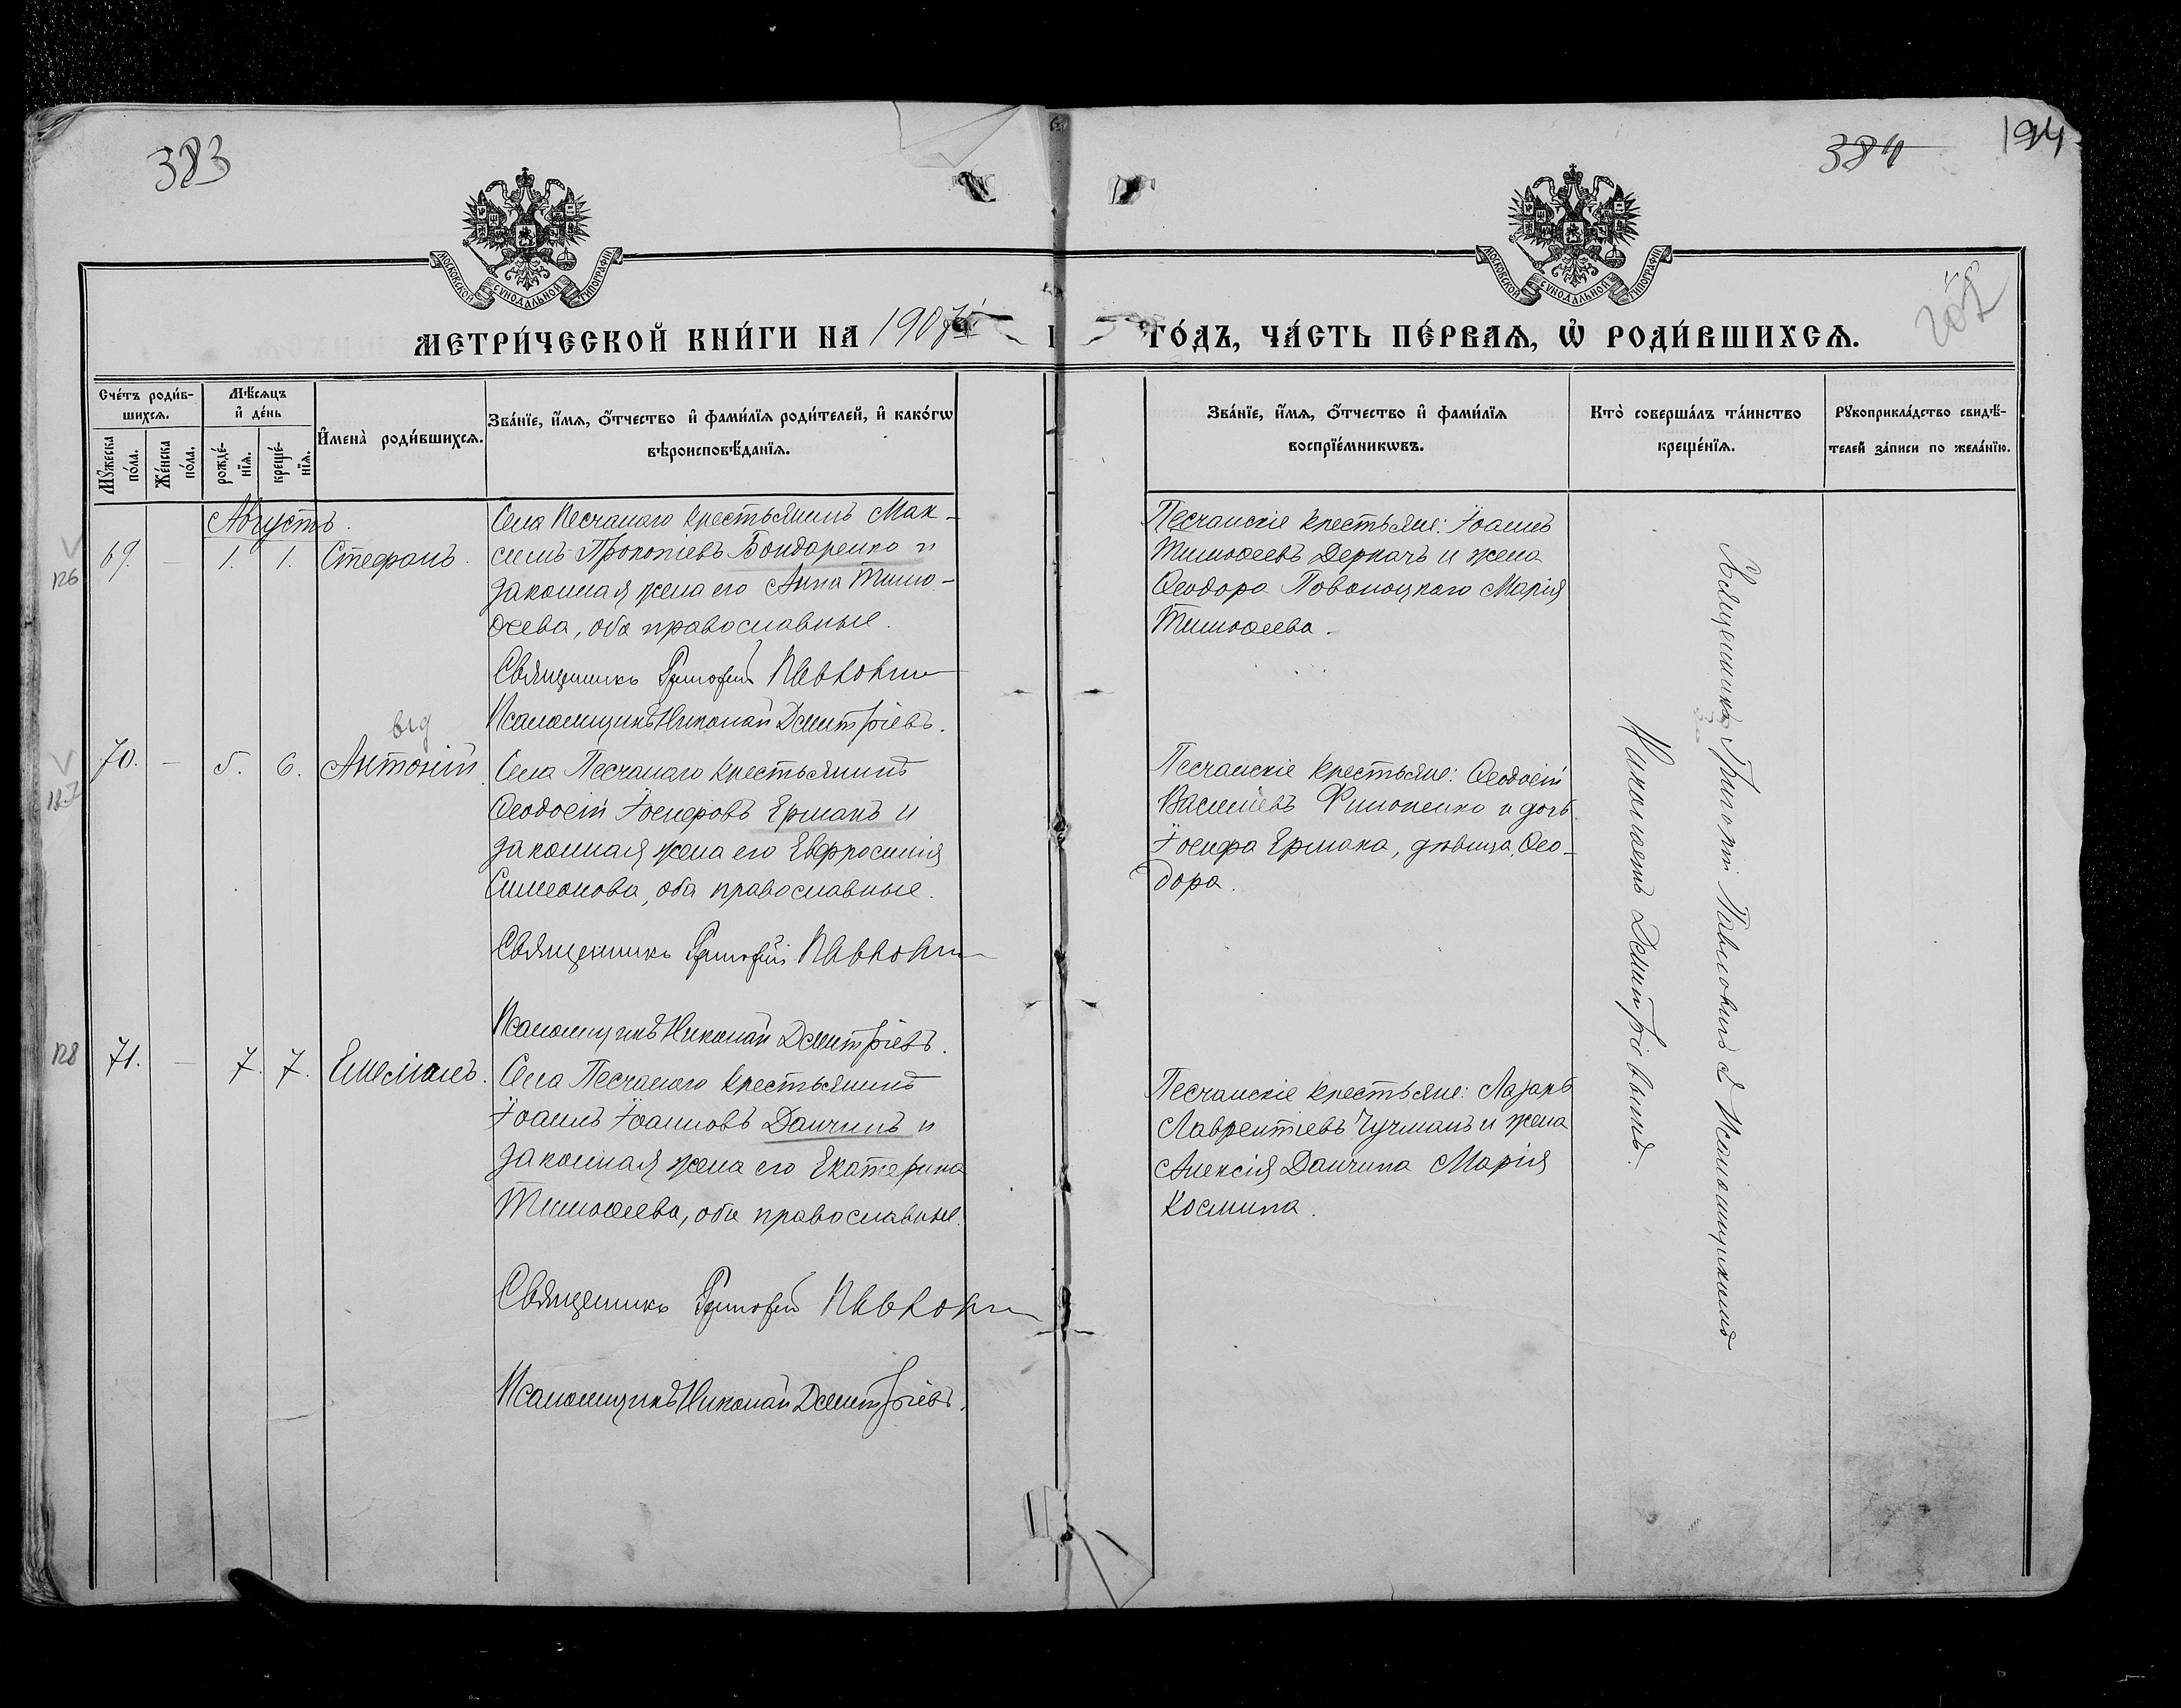 383
384
194
МОСКОВСКОЙ СѴНОДАЛЬНОЙ ТИПОГРАФІИ
МОСКОВСКОЙ СѴНОДАЛЬНОЙ ТИПОГРАФІИ
МЕТРИ́ЧЕСКОЙ КНИ́ГИ НА 1907
ГО́ДЪ, ЧА́СТЬ ПЕ́РВАѦ, Ѡ҆ РОДИ́ВШИХСѦ.
Сче́тъ роди́в-
шихсѧ.
Мꙋ́жеска по́ла.
Же́нска по́ла.
Мѣ́сѧцъ
и҆ де́нь
рожде́-нїѧ.
креще́-нїѧ.
И҆мена̀ роди́вшихсѧ.
Зва́нїе, и҆́мѧ, ѻ҆́тчество и҆ фами́лїѧ роди́телей, и҆ како́гѡ
вѣроисповѣ́данїѧ.
Зва́нїе, и҆́мѧ, ѻ҆́тчество и҆ фами́лїѧ
воспрїе́мникѡвъ.
Кто̀ соверша́лъ та́инство
креще́нїѧ.
Рꙋкоприкла́дство свидѣ́-
телей за́писи по жела́нїю.
Августъ.
126
69. — 1. 1. Стефанъ.
Села Песчанаго крестьянинъ Мак-
симъ Прокопіевъ Бондаренко и
законная жена его Анна Тимо-
ѳеева, оба православные.
Священникъ Григорій Павлович
Псаломщикъ Николай Димитріевъ.
Песчанскіе крестьяне: Іоаннъ
Тимоѳеевъ Деркачъ и жена
Ѳеодора Поволоцкаго Марія
Тимоѳеева.
127
70. — 5. 6. Антоній.
Села Песчанаго крестьянинъ
Ѳеодосій Іосифовъ Ермакъ и
законная жена его Евфросинія
Симеонова, оба православные.
Священникъ Григорій Павлович
Псаломщикъ Николай Димитріевъ.
Песчанскіе крестьяне: Ѳеодосій
Василіевъ Филоненко и дочь
Іосифа Ермака, дѣвица, Ѳео-
дора.
128
71. — 7. 7. Емеліанъ.
Села Песчанаго крестьянинъ
Іоаннъ Іоанновъ Данчинъ и
законная жена его Екатерина
Тимоѳеева, оба православные.
Священникъ Григорій Павлович
Псаломщикъ Николай Димитріевъ.
Песчанскіе крестьяне: Лазарь
Лаврентіевъ Чучманъ и жена
Алексія Данчина Марія
Космина.
Священникъ Григорій Павловичъ съ Псаломщикомъ
Николаемъ Димитріевымъ.